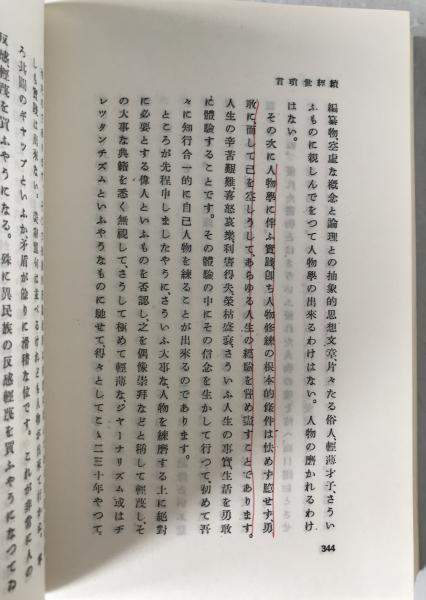 續經世瑣言
編纂物、空虚な概念と論理との抽象的思想文章、片々たる俗人、輕薄才子、さうい
ふものに親しんでをつて人物學の出來るわけはない。人物の磨かれるわけ
はない。
その次に人物學に伴ふ實踐卽ち人物修練の根本的條件は怯めず臆せず、勇
敢に、而して己を空しうして、あらゆる人生の經驗を嘗め盡すことであります。
人生の辛苦艱難、喜怒哀樂、利害得失、榮枯盛衰さういふ人生の事實、生活を勇敢
に體驗することです。その體驗の中にその信念を生かして行つて、初めて吾
々に知行合一的に自己人物を練ることが出來るのであります。
ところが先程申しましたやうに、さういふ大事な人物を練磨する上に絕對
に必要とする偉人といふものを否認し、之を偶像崇拜などと稱して輕蔑し、そ
の大事な典籍を悉く無視して、さうして極めて輕薄な、ジヤーナリズム或はヂ
レツタンチズムといふやうなものに馳せて、得々としてこゝ二三十年やつて、
344
しも實踐は出來ない。
ろ北間のギャップといふか矛盾が餘りに滑稽な位です。これが非常に人の
反感輕蔑を買ふやうになる。殊に異民族の反感輕蔑を買ふやうになつてゐ